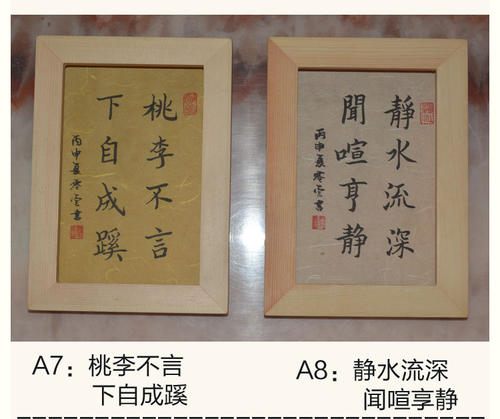 桃李不言
下自成蹊
丙申夏
書
静水流深
聞喧亨静
丙申夏
書
A7：桃李不言
下自成蹊
A8：静水流深
闻喧享静